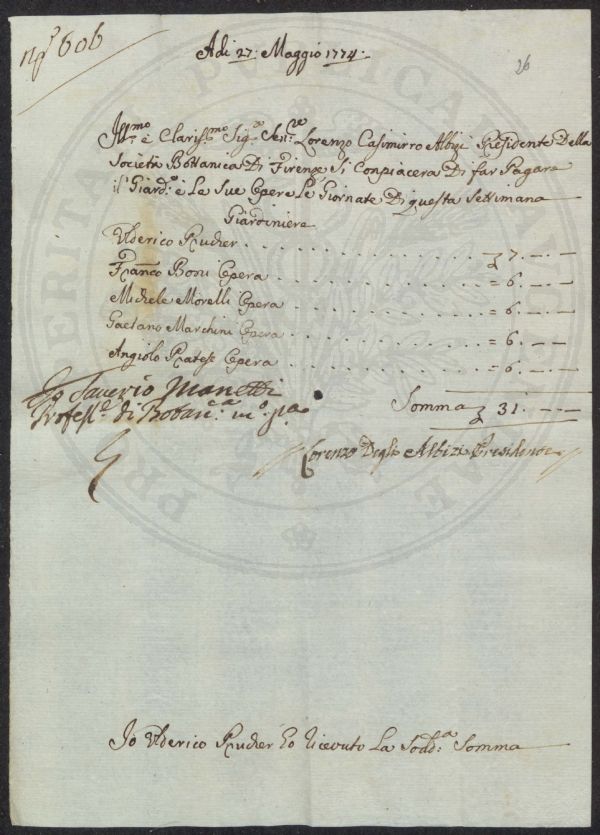 nº 606
Adi 27: Maggio 1774:
26
Ill:mo è Clariss:mo Sig:re Sen:re Lorenzo Casimirro Albizi Presidente Della
Società Bottanica Di Firenze Si Conpiacera Di far Pagare
il Giard:o è Le Sue Opere Le Giornate Di questa Settimana
Giardiniere
Ulderico Prucher . . . . . . . . . . . . . . . 7. — —
Franco Boni Opera . . . . . . . . . . . . . = 6. — —
Michele Morelli Opera . . . . . . . . . . . = 6. — —
Gaetano Marchini Opera . . . . . . . . . . = 6. — —
Angiolo Pratese Opera . . . . . . . . . . . = 6. — —
Somma 31. — —
Io Saverio Manetti
Profess:e di Botan:ca m:o p:a
Lorenzo Degli Albizi Presidente
Io Ulderico Prucher Ho ricevuto La Sodd:a Somma